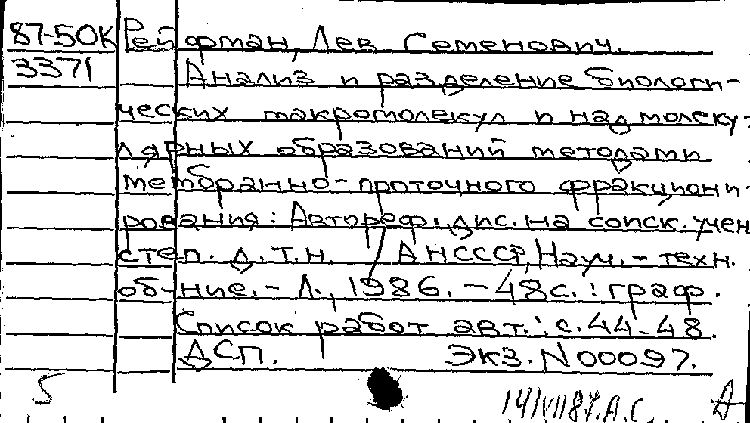 87-50К Рейфман, Лев Семенович.
3371 Анализ и разделение биологи-
ческих макромолекул и надмолеку-
лярных образований методами
мембранно-проточного фракциони-
рования: Автореф. дис. на соиск. учен
степ. д.т.н. / АН СССР, Науч.-техн.
об-ние. - Л., 1986. - 48с.: граф.
Список работ авт.: с.44-48.
ДСП. Экз. N 00097.
5 14/VII87. А.С. А